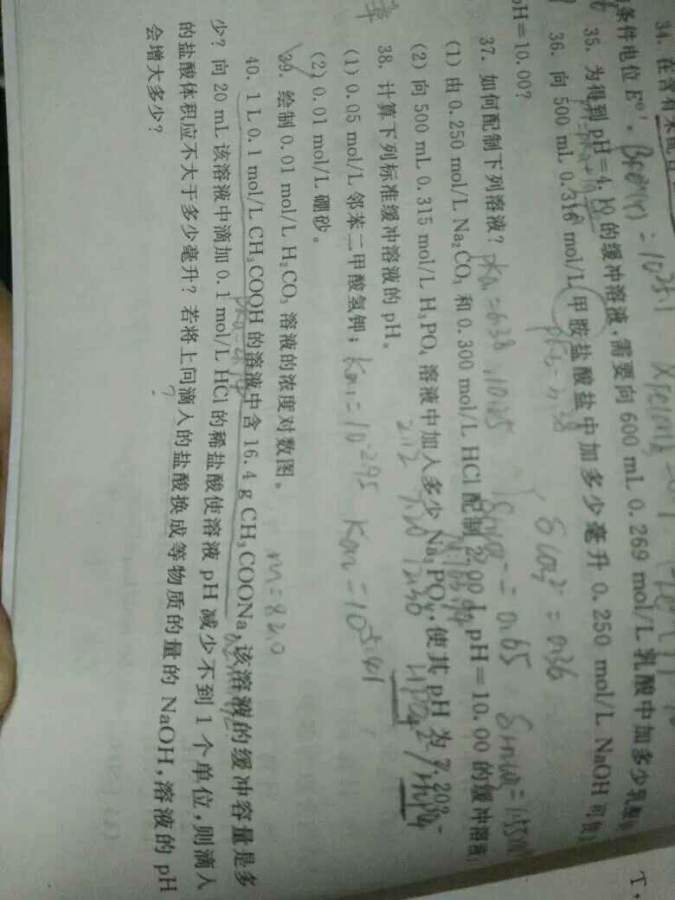 34. 在含有未配
条件电位 E°′。
35. 为得到 pH=4.10 的缓冲溶液,需要向 600 mL 0.269 mol/L 乳酸中加多少乳酸
36. 向 500 mL 0.316 mol/L 甲胺盐酸盐中加多少毫升 0.250 mol/L NaOH 可使
pH=10.00?
37. 如何配制下列溶液? pka=6.38 10.25
(1) 由 0.250 mol/L Na₂CO₃ 和 0.300 mol/L HCl 配制 2.00 L pH=10.00 的缓冲溶液;
(2) 向 500 mL 0.315 mol/L H₃PO₄ 溶液中加入多少 Na₃PO₄,使其 pH 为 7.20?
38. 计算下列标准缓冲溶液的 pH。
(1) 0.05 mol/L 邻苯二甲酸氢钾;
(2) 0.01 mol/L 硼砂。
39. 绘制 0.01 mol/L H₂CO₃ 溶液的浓度对数图。
m=82.0
40. 1 L 0.1 mol/L CH₃COOH 的溶液中含 16.4 g CH₃COONa,该溶液的缓冲容量是多
少? 向 20 mL 该溶液中滴加 0.1 mol/L HCl 的稀盐酸使溶液 pH 减少不到 1 个单位,则滴入
的盐酸体积应不大于多少毫升? 若将上问滴入的盐酸换成等物质的量的 NaOH,溶液的 pH
会增大多少?